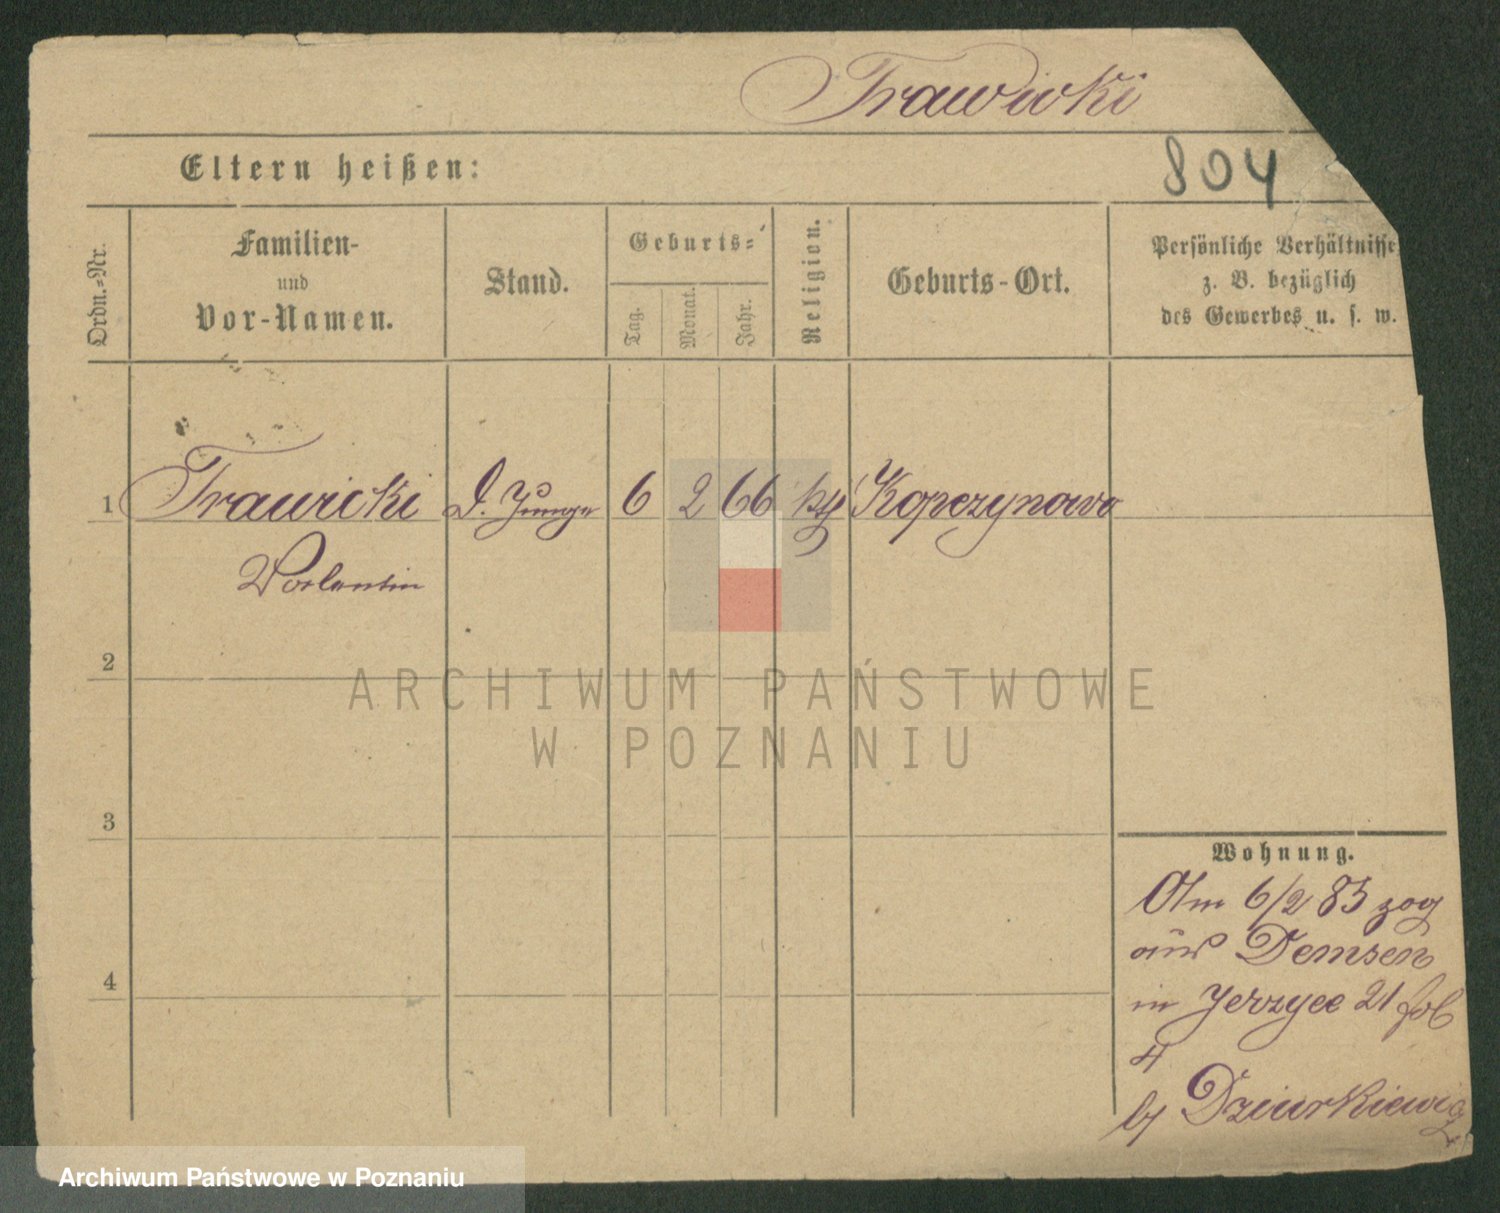 Trawicki
804
Eltern heißen:
Ordn.-Nr.
Familien-
und
Vor-Namen.
Stand.
Geburts-
Tag.
Monat.
Jahr.
Religion.
Geburts-Ort.
Persönliche Verhältnisse
z. B. bezüglich
des Gewerbes u. s. w.
1 Trawicki D. Junge 6 2 66 kth Kopczynowo
Valentin
2
3
4
Wohnung.
Am 6/2 85 zog
aus Demsen
in Jerzyce 21 fol
4
by Dziurkiewicz
ARCHIWUM PAŃSTWOWE
W POZNANIU
Archiwum Państwowe w Poznaniu